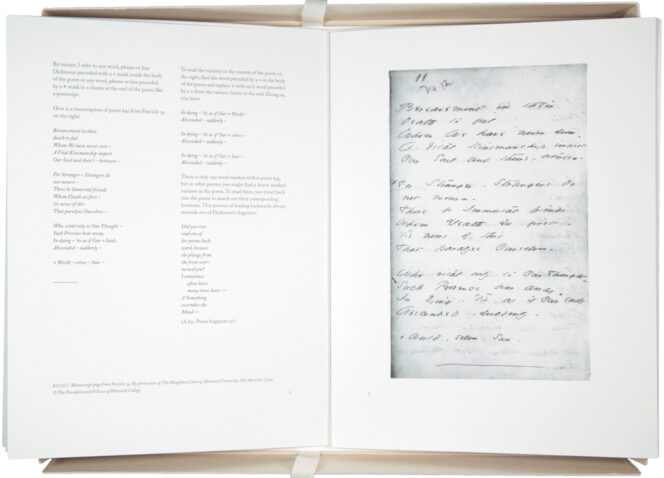 By variant, I refer to any word, phrase or line
Dickinson preceded with a + mark inside the body
of the poem or any word, phrase or line preceded
by a + mark in a cluster at the end of the poem like
a postscript.
Here is a transcription of poem 645 from Fascicle 34
on the right:
Bereavement in their
death to feel
Whom We have never seen –
A Vital Kinsmanship import
Our Soul and their's – between –
For Stranger – Strangers do
not mourn –
There be Immortal friends
Whom Death see first –
'tis news of this
That paralyze Ourselves –
Who, vital only to Our Thought –
Such Presence bear away
In dying – 'tis as if Our + Souls
Absconded – suddenly –
+ World – selves – Sun –
To read the variants in the context of the poem on
the right, find the word preceded by a + in the body
of the poem and replace it with each word preceded
by a + from the variant cluster at the end. Doing so,
you have:
In dying – 'tis as if Our + World –
Absconded – suddenly –
In dying – 'tis as if Our + selves –
Absconded – suddenly –
In dying – 'tis as if Our + Sun –
Absconded – suddenly –
There is only one word marked within poem 645,
but in other poems, you might find a dozen marked
variants in the poem. To read them, you travel back
into the poem to match out their corresponding
locations. This process of reading backwards always
reminds me of Dickinson's fragment:
Did you ever
read one of
her poems back-
ward, because
the plunge from
the front over-
turned you?
I sometimes
often have
many times have —
A Something
overtakes the
Mind —
(A 851, Prose fragment 30)
RIGHT: Manuscript page from Fascicle 34. By permission of The Houghton Library, Harvard University,
© The President and Fellows of Harvard College
11
Bereavement in their
death to feel
Whom We have never seen –
A Vital Kinsmanship import
Our Soul and their's – between –
For Stranger – Strangers do
not mourn –
There be Immortal friends
Whom Death see first –
'tis news of this
That paralyze Ourselves –
Who, vital only to Our Thought –
Such Presence bear away
In dying – 'tis as if Our + Souls
Absconded – suddenly –
+ World – selves – Sun –